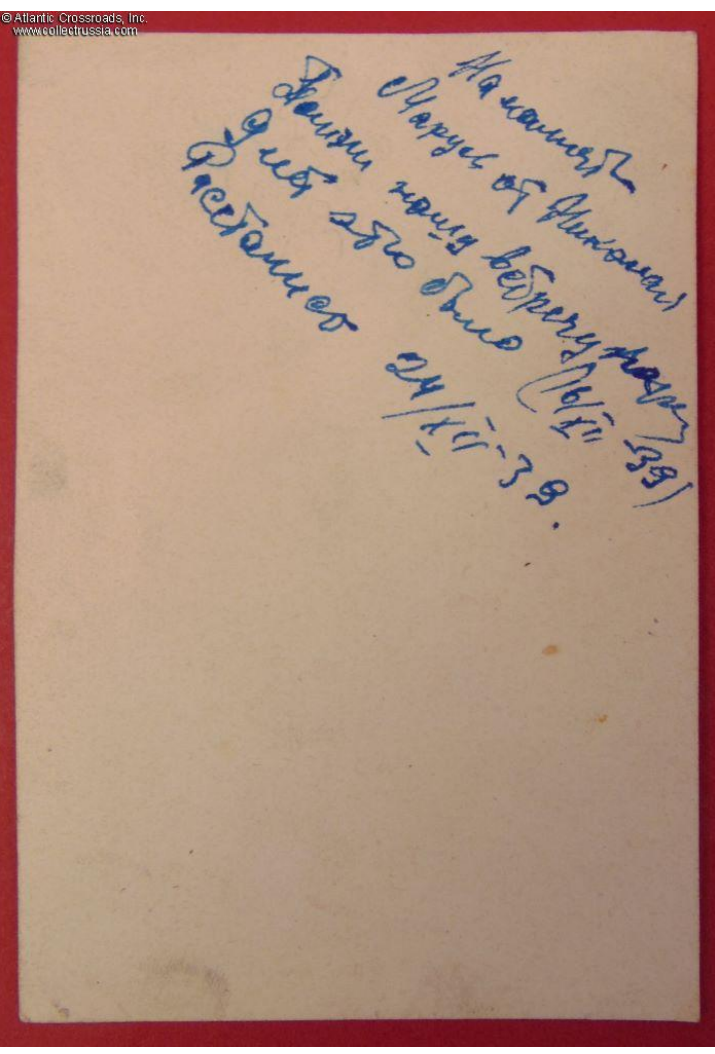 © Atlantic Crossroads, Inc.
www.collectrussia.com
На память
Марусе от Николая
Помни нашу встречу через
9 лет это было (16/XII-39)
Расстались 24/XII-39.